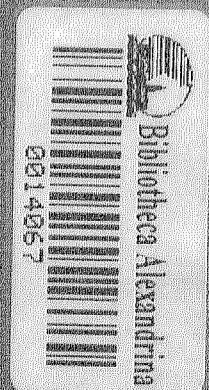 Bibliotheca Alexandrina
0014067